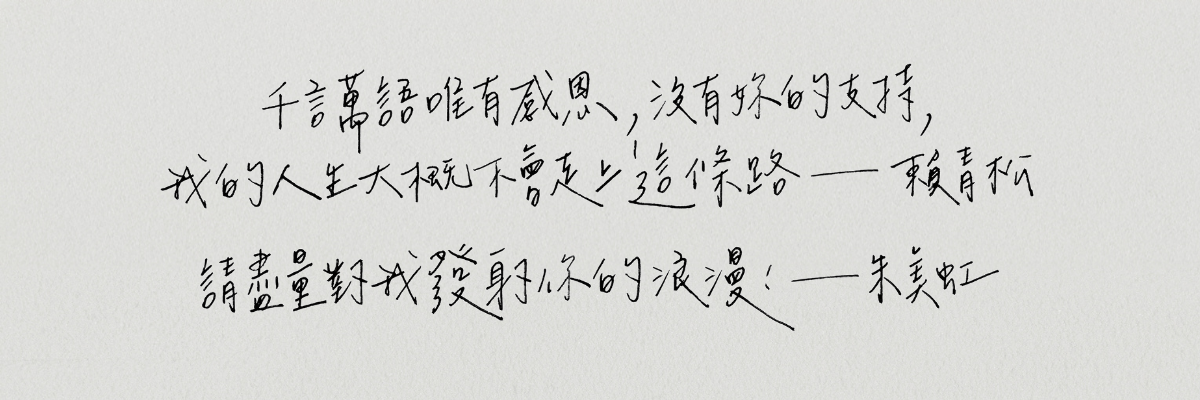 千言萬語唯有感恩,沒有妳的支持,
我的人生大概不會走上這條路——賴青松
請盡量對我發射你的浪漫!——朱美虹